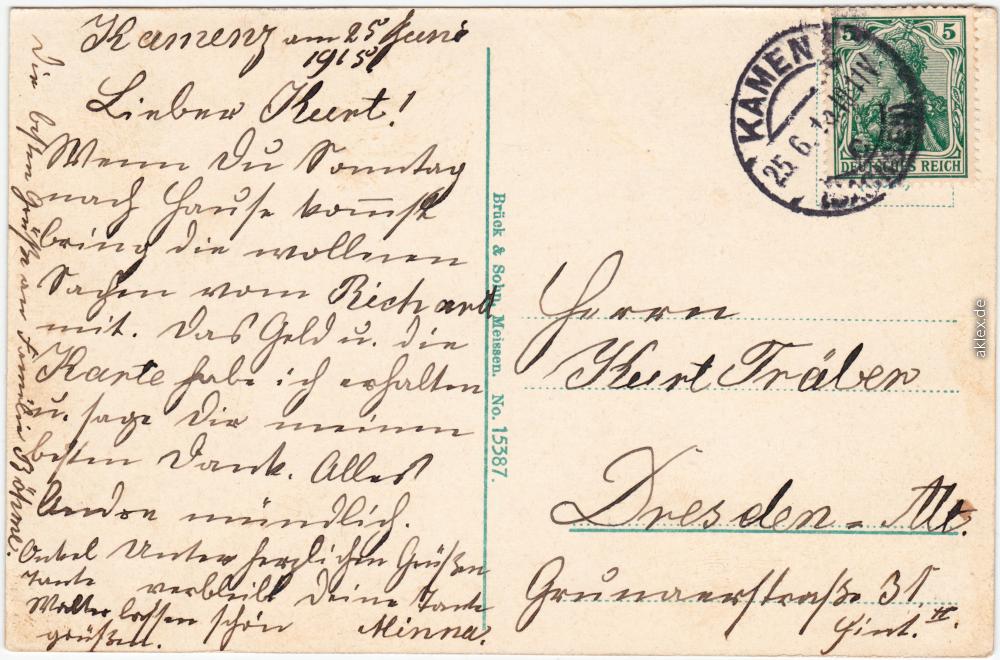 Kamenz am 25 Juni
1915.
Lieber Kurt!
Wenn Du Sonntag
nach Hause kommst
bring die wollnen
Sachen vom Richard
mit. Das Geld u. die
Karte habe ich erhalten
u. sage Dir meinen
besten Dank. Alles
Andre mündlich.
Unter herzlichen Grüßen
verbleibt Deine Tante
Minna.
Onkel
Tante
Walter lassen schön
grüßen.
Die besten Grüße an Familie Böhme.
Brück & Sohn, Meissen. No. 15387.
KAMENZ
25.6.15
(SACHSEN)
5 5
DEUTSCHES REICH
Herrn
Kurt Träber
Dresden - Alt.
Grunaerstraße 31 II
Hint.
aklex.de